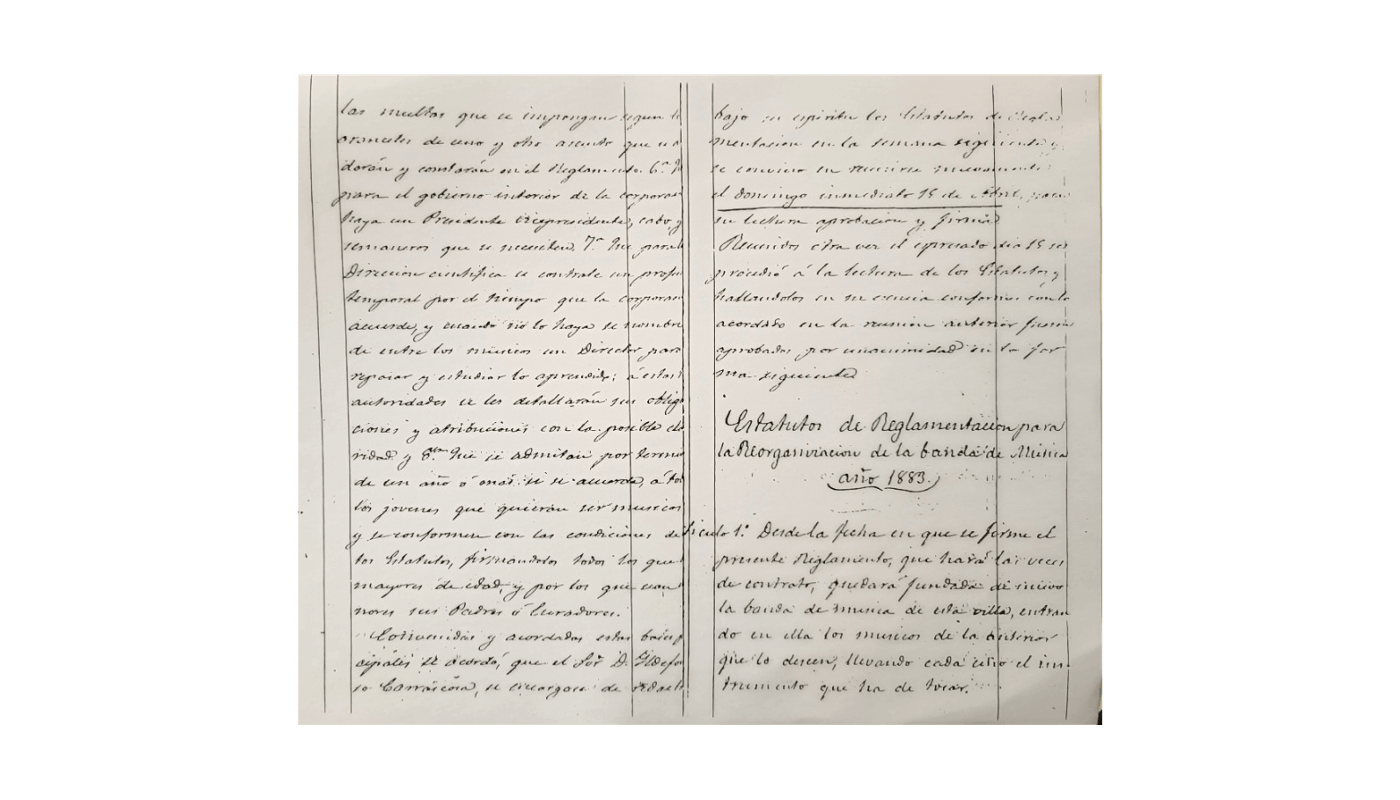 las multas que se impongan segun l
aranceles de uno y otro asunto que u
dorán y constarán en el Reglamento. 6.ª
para el gobierno interior de la corporac
haya un Presidente Vicepresidente, cabo y
semaneros que se necesiten 7.ª Que para
Dirección cientifica se contrate un profes
temporal por el tiempo que la corporac
acuerde, y cuando no lo haya se nombre
de entre los músicos un Director para
repasar y estudiar lo aprendido; á estas
autoridades se les detallarán sus oblig
ciones y atribuciones con la posible cla
ridad y 8.ª Que se admitan por termi
de un año ó mas si se acuerda, á to
los jovenes que quieran ser musicos
y se conformen con las condiciones de
tos Estatutos, firmandolos todos los que
mayores de edad, y por los que sean
nores sus Padres ó Curadores.
Convenidas y acordadas estas bases p
cipales se acordó, que el Sor D. Ildefon
so Carrascosa, se encargara de redact
bajo su espiritu los Estatutos de Regla
mentacion en la semana siguiente y
se convino en reunirse nuevamente
el domingo inmediato 15 de Abril, para
su lectura aprobacion y firma
Reunidos otra vez el espresado dia 15 se
procedió á la lectura de los Estatutos y
hallandolos en su esencia conformes con lo
acordado en la reunion anterior fueron
aprobados por unanimidad en la for
ma siguiente
Estatutos de Reglamentacion para
la Reorganizacion de la banda de Música
año 1883.
ticulo 1.º Desde la fecha en que se firme el
presente Reglamento, que hará las veces
de contrato, quedará fundada de nuevo
la banda de musica de esta villa, entran
do en ella los musicos de la anterior
que lo deseen, llevando cada uno el ins-
trumento que ha de tocar.